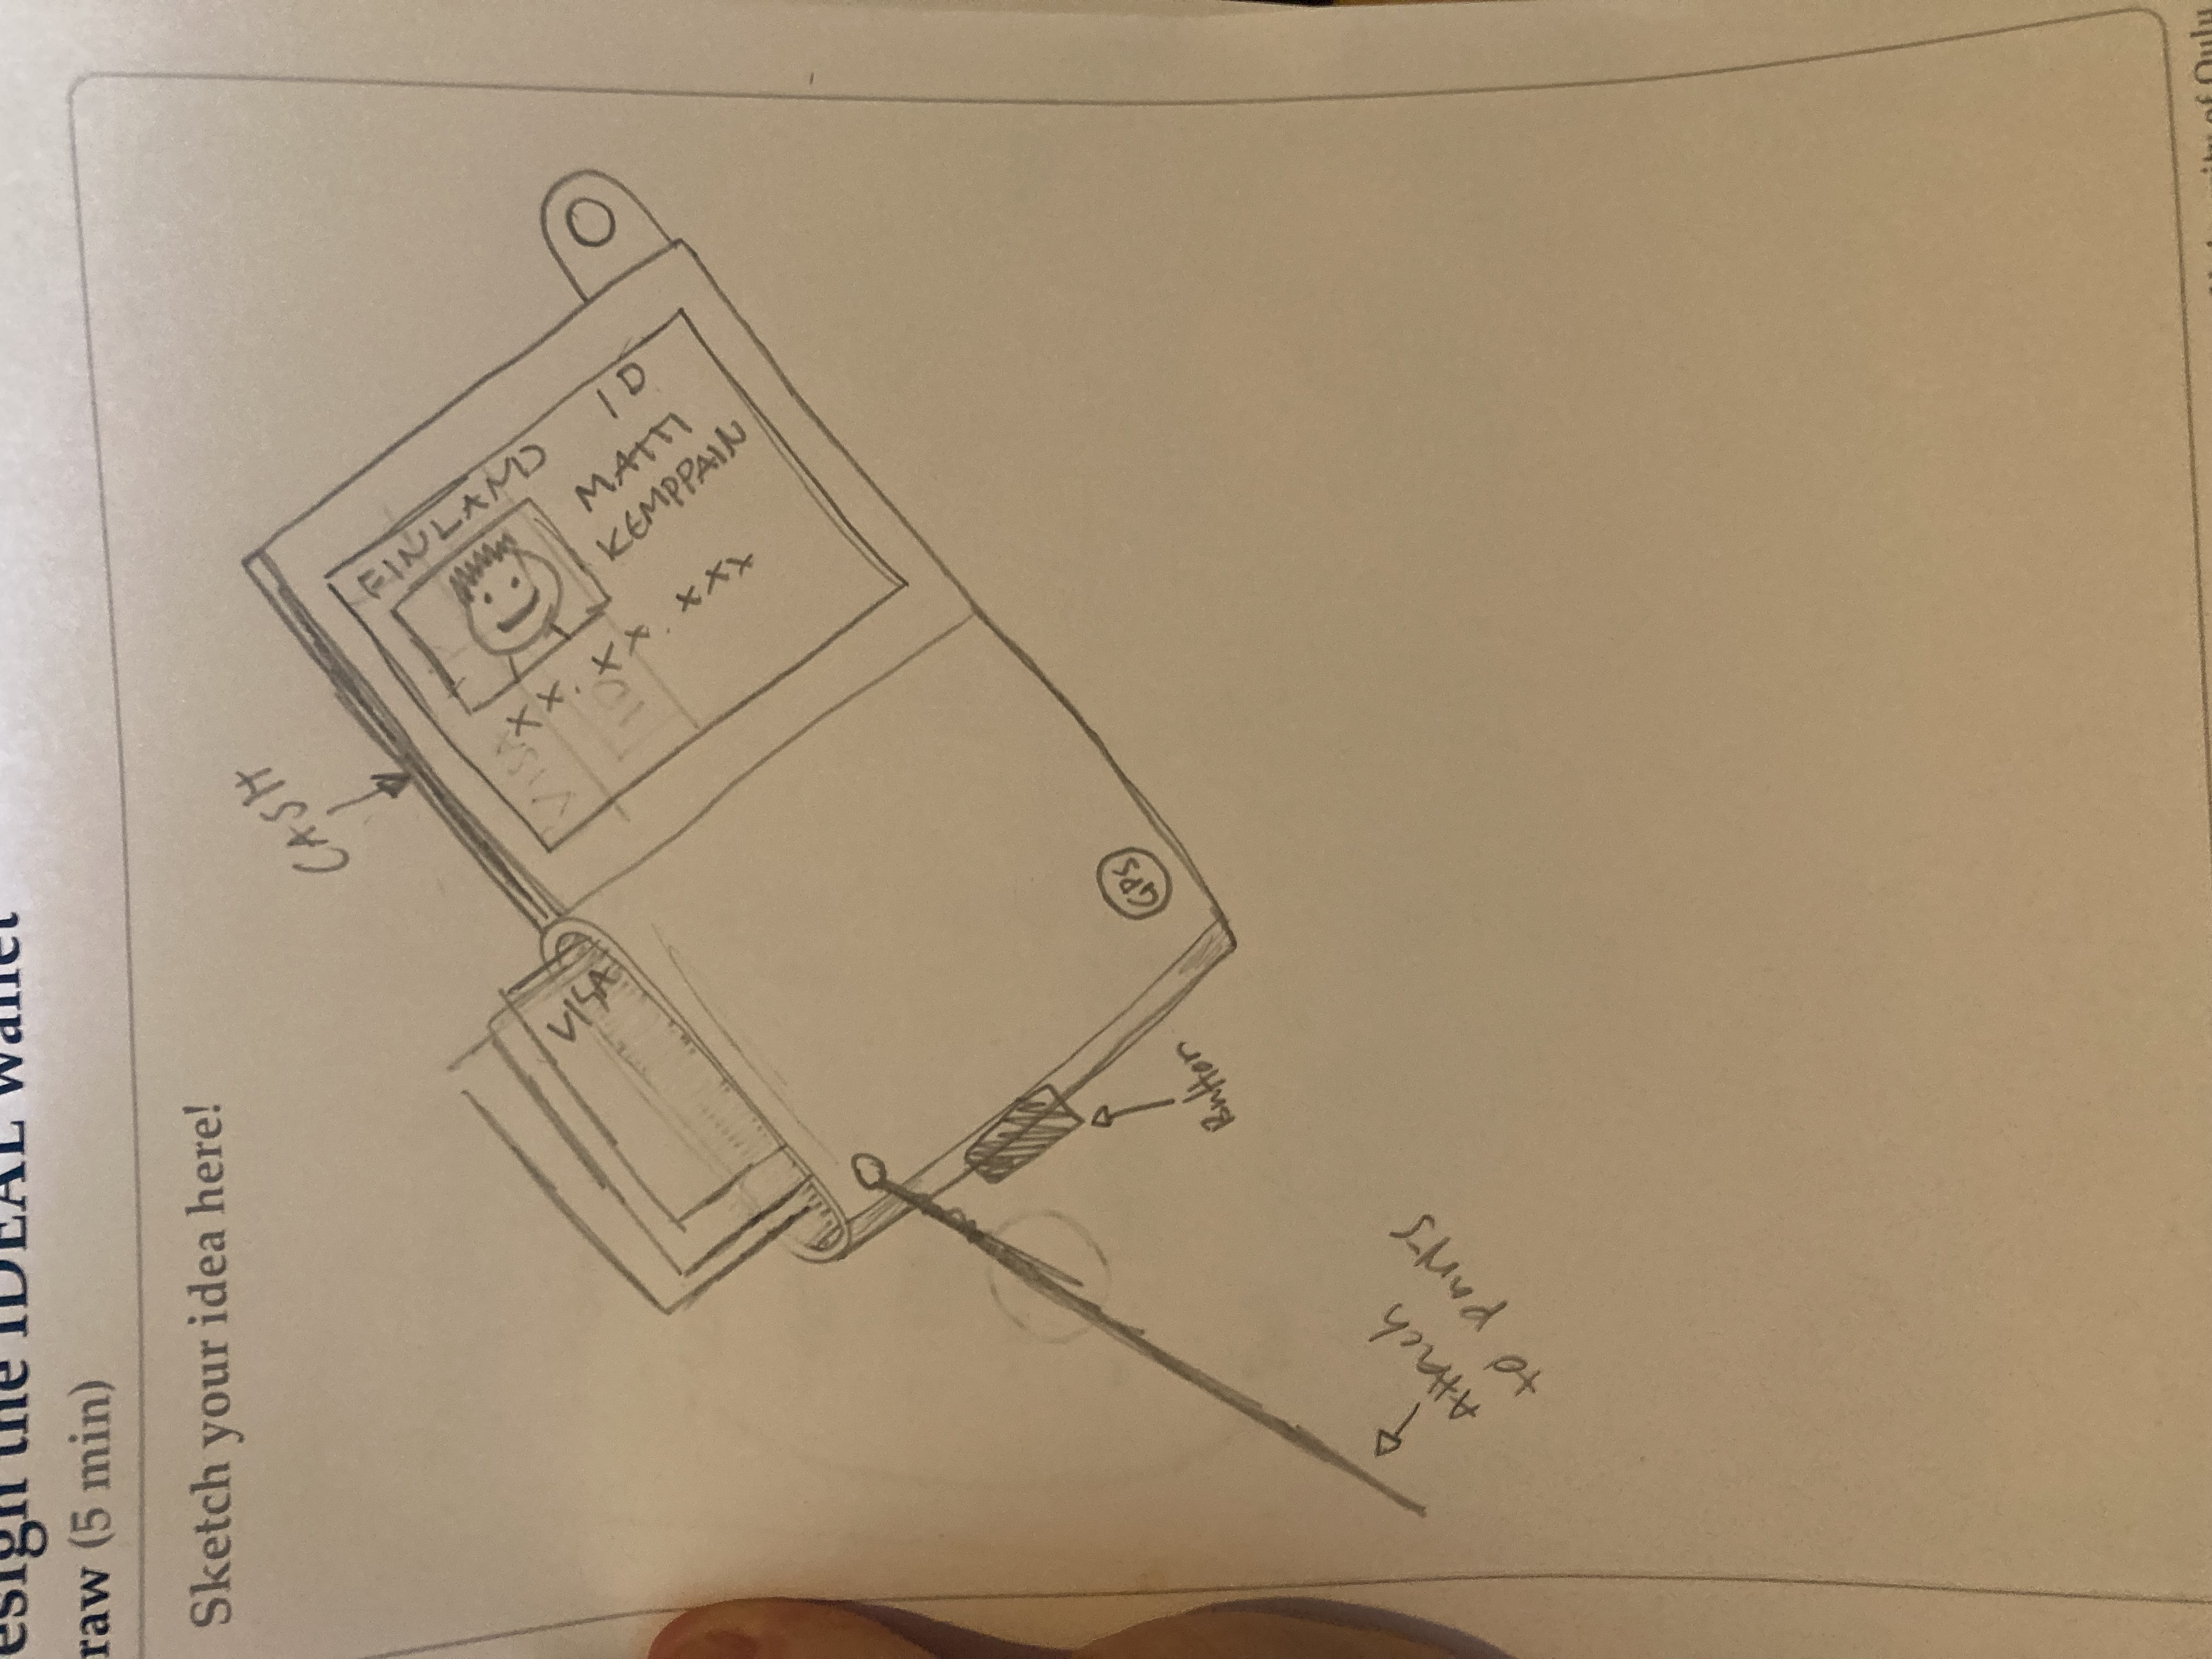 esign the IDEAL wallet
raw (5 min)
Sketch your idea here!
CASH
FINLAND
ID
MATTI
KEMPPAIN
XX.XX.XXX
VISA
ID
VISA
GPS
Button
Attach
to pants
University of Oulu